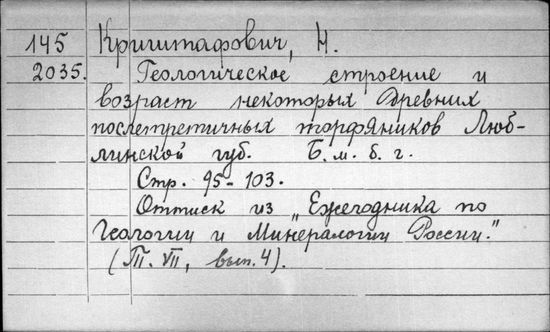 145 Криштафович, Н.
2035. Геологическое строение и
возраст некоторых древних
послетретичных торфяников Люб-
линской губ. Б. м. б. г.
Стр. 95-103.
Оттиск из „Ежегодника по
Геологии и Минералогии России."
(Т. VII, вып. 4).